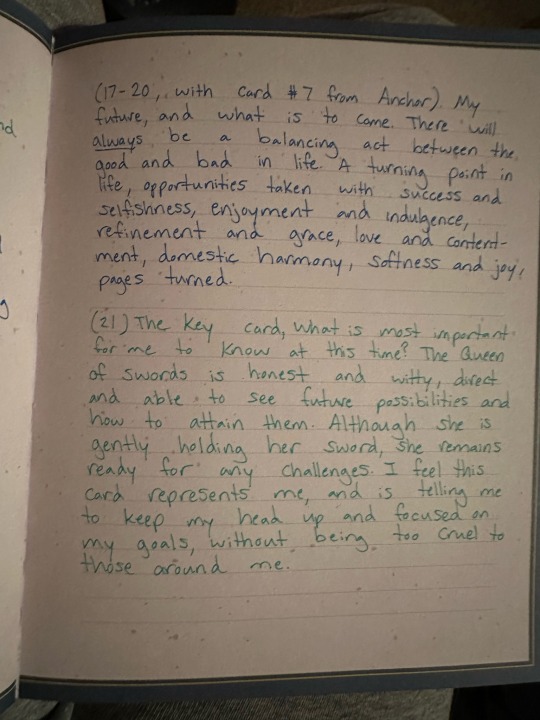 (17-20, with Card #7 from Anchor). My
future, and what is to come. There will
always be a balancing act between the
good and bad in life. A turning point in
life, opportunities taken with success and
selfishness, enjoyment and indulgence,
refinement and grace, love and content-
ment, domestic harmony, softness and joy,
pages turned.
(21) The Key card, What is most important
for me to know at this time? The Queen
of swords is honest and witty, direct
and able to see future possibilities and
how to attain them. Although she is
gently holding her sword, she remains
ready for any challenges. I feel this
card represents me, and is telling me
to keep my head up and focused on
my goals, without being too cruel to
those around me.